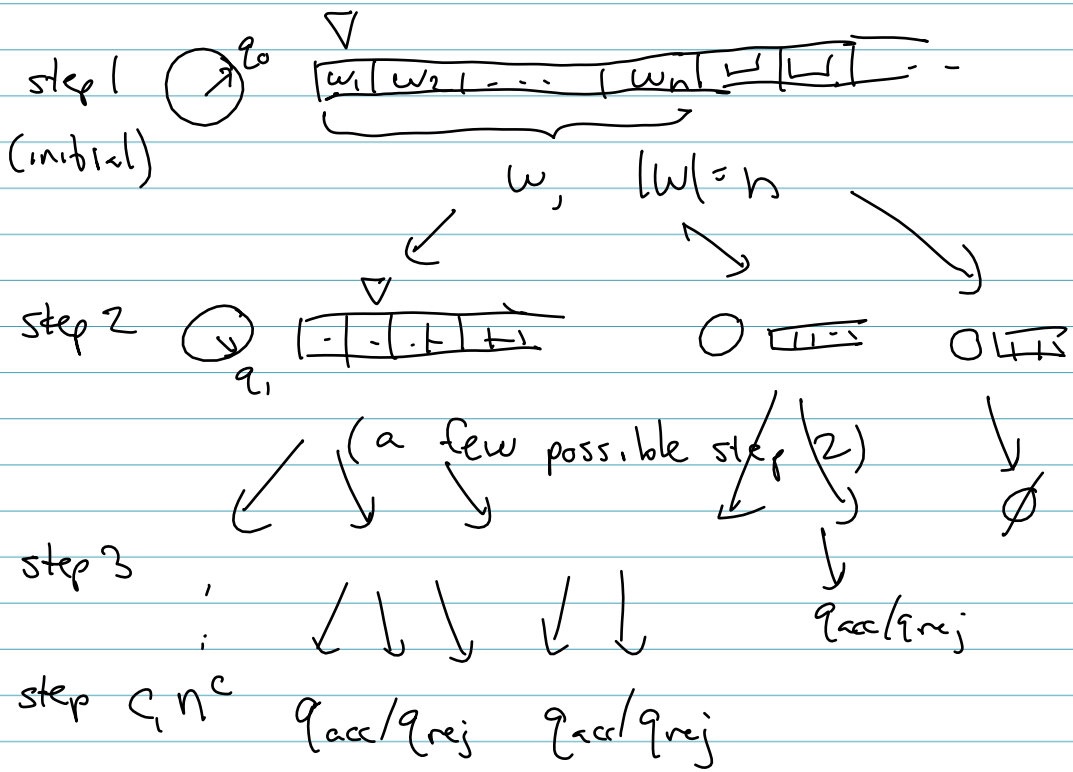 step 1 q₀ w₁ w₂ ... wₙ ⊔ ⊔ ...
(initial)
w, |w| = n
step 2
q₁
(a few possible step 2)
∅
step 3
qacc/qrej
step c₁nᶜ qacc/qrej qacc/qrej